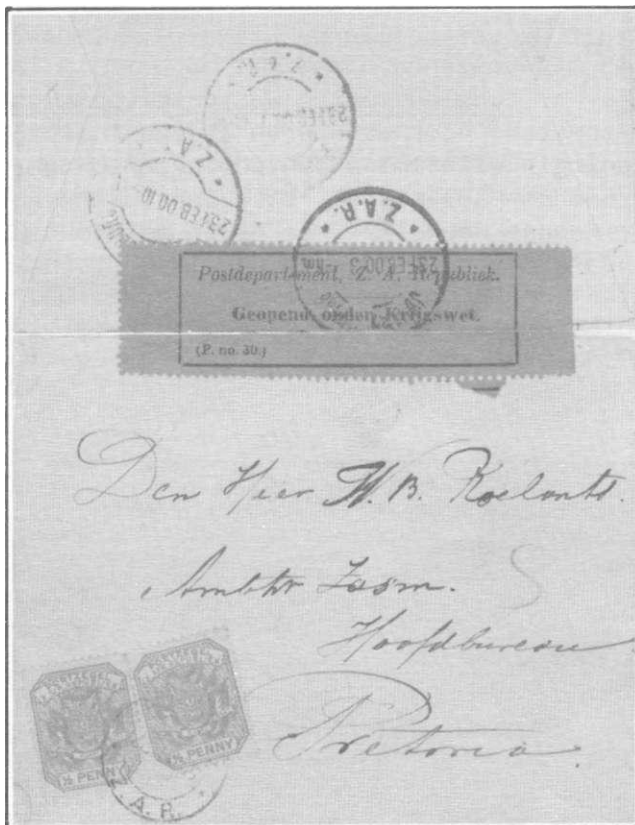 * Z.A.R. *
23 FEB 00
* Z.A
23 FEB 00 10
* Z.A.R. *
23 FEB 00
Postdepartement, Z. A. Republiek.
Geopend onder Krijgswet.
(P. no. 30.)
Den Heer W. B. Roelants.
Ambtr Zasm.
Hoofdbureau
Pretoria.
POSTZEGEL
POSTZEGEL
½ PENNY
½ PENNY
Z.A.R.